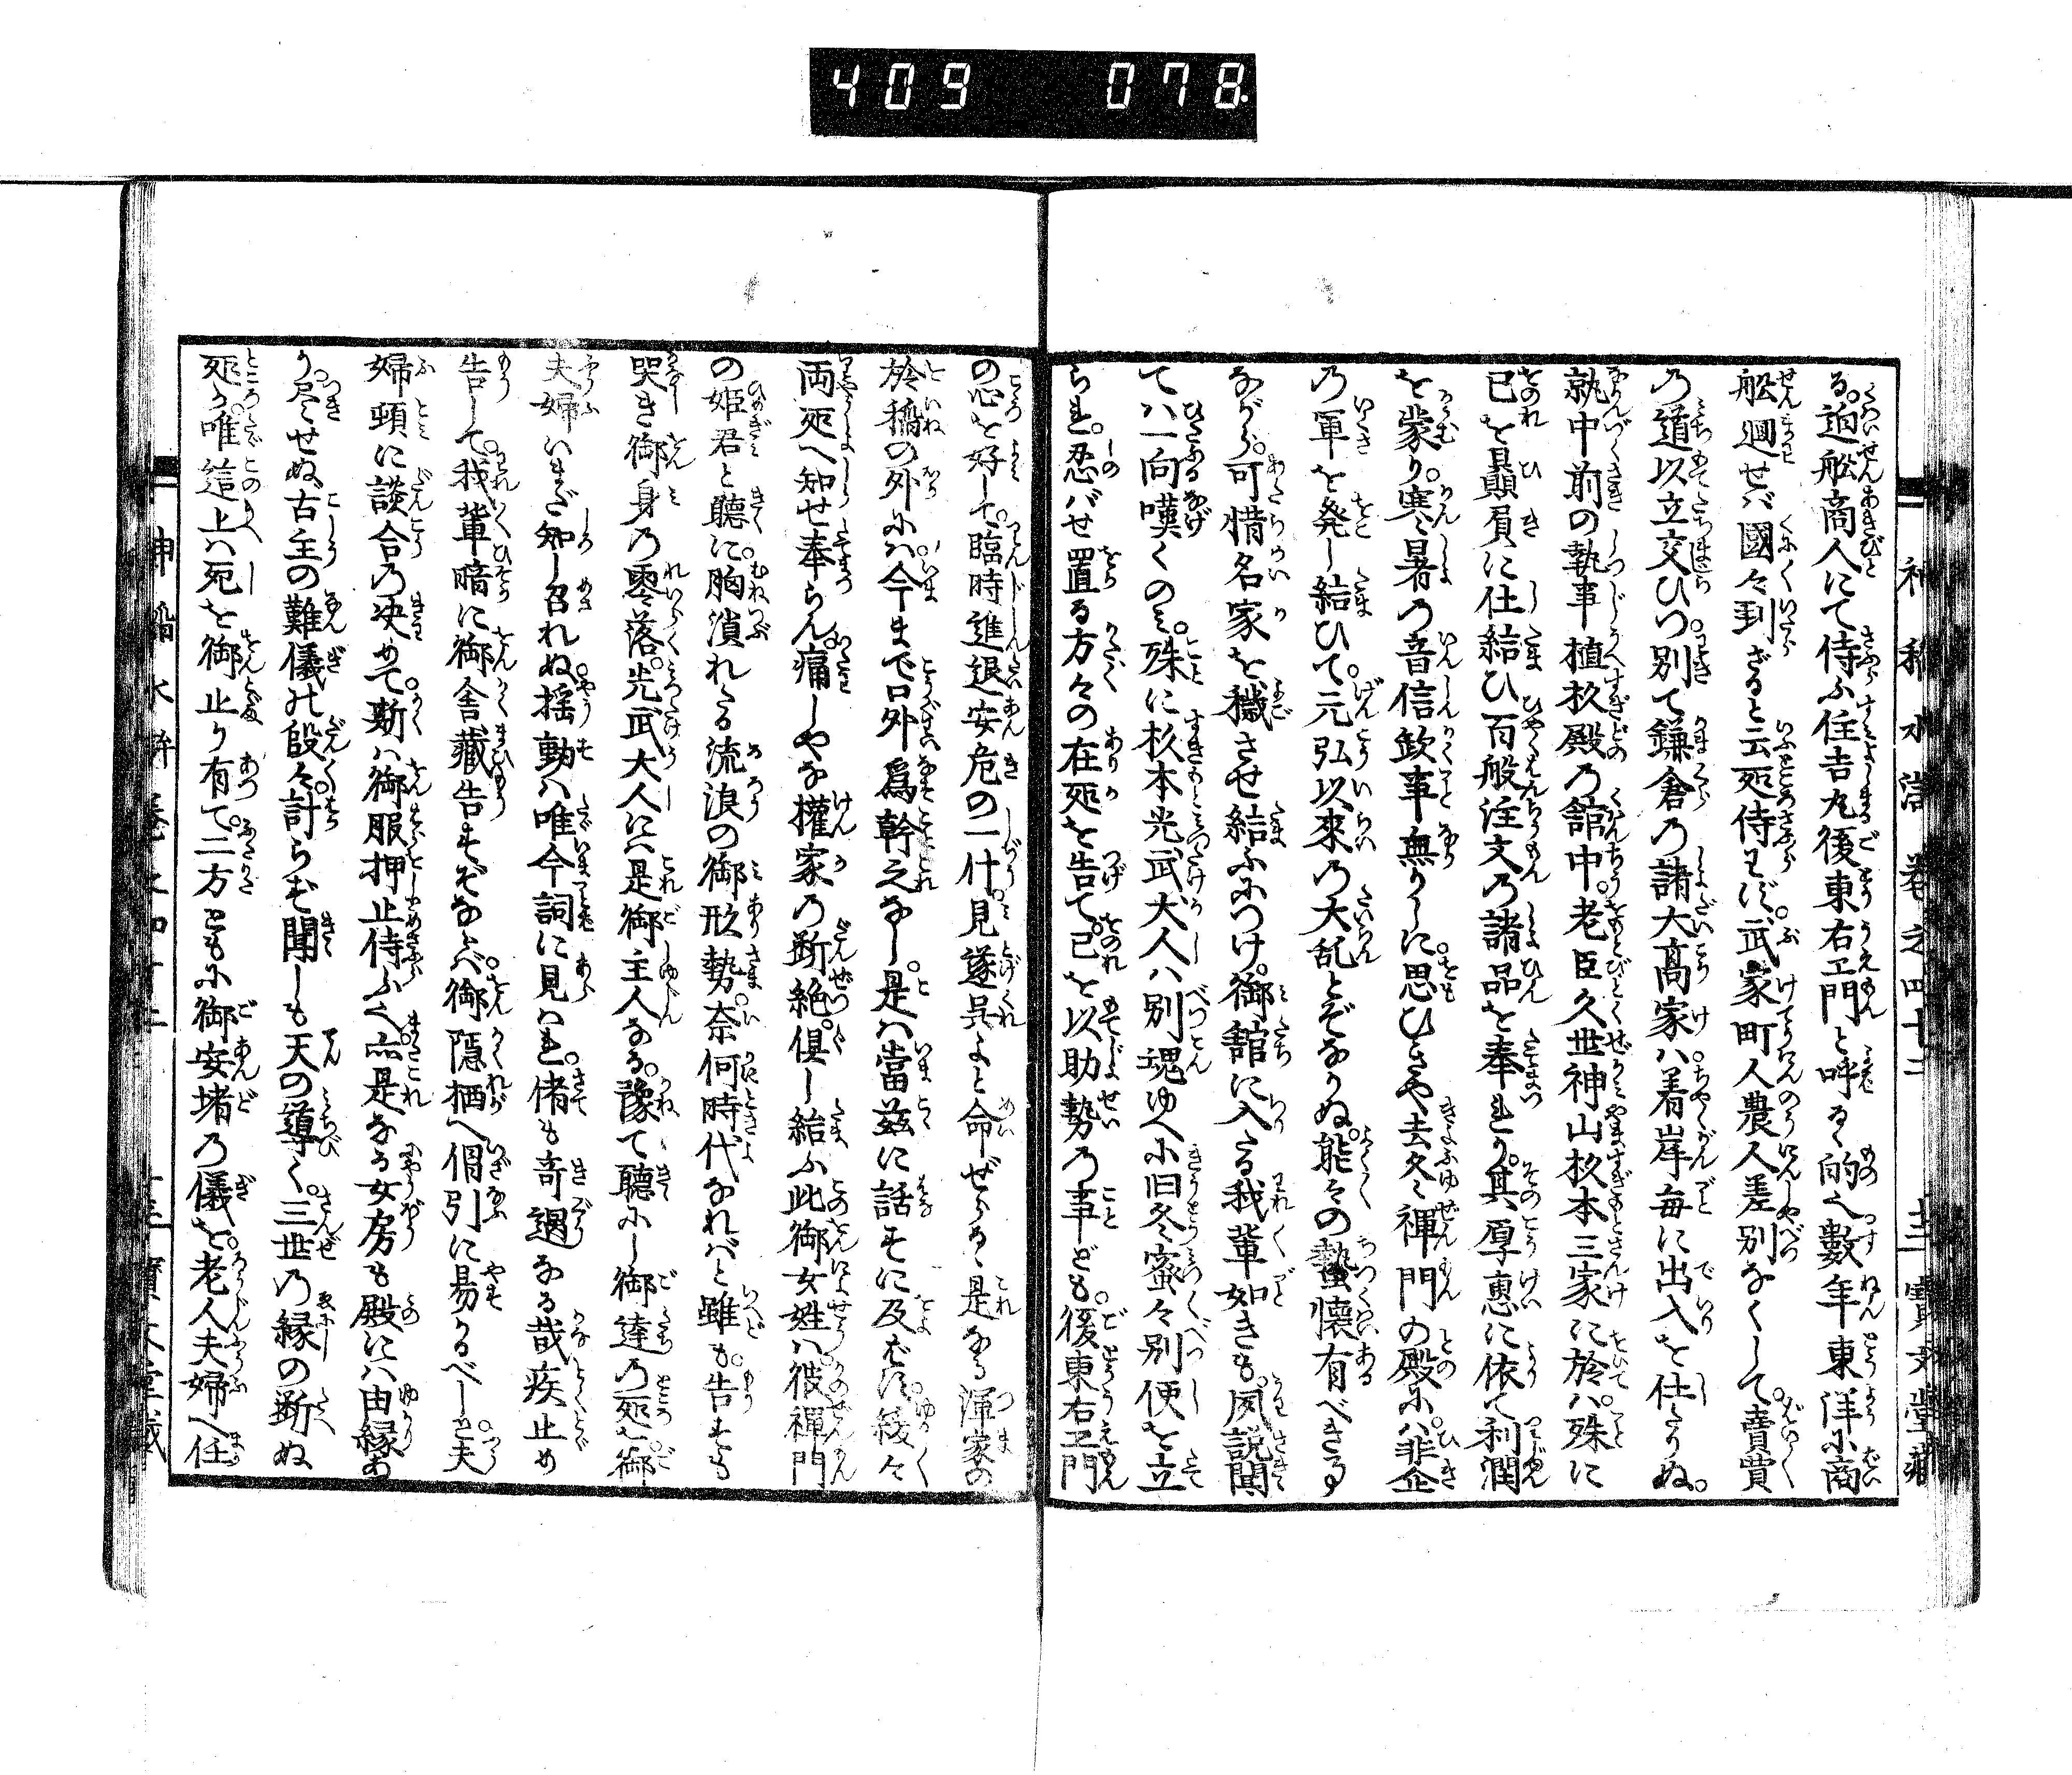 409 078
る。廻舩商人にて侍ふ住吉丸後東右エ門と呼るゝ的て數年東洋に商
舩廻せば國々到ざると云処侍らず。武家町人農人差別なくして。賣買
の道以立交ひつ。別て鎌倉の諸大髙家ハ着岸毎に出入を仕つりぬ。
孰中前の執事植杦殿の舘中。老臣久世神山杦本三家に於ハ。殊に
已を贔屓に仕結ひ百般注文の諸品を奉れり。其厚惠に依て利潤
を蒙り。寒暑の音信欽事無りしに。思ひきや去冬禪門の殿にハ非企
の軍を発し結ひて。元弘以來の大乱とぞなりぬ。能々の蟄懐有べき事
ながら。可惜名家を穢させ結ふにつけ。御舘に入たる我輩如きも。夙説聞
てハ一向嘆くのミ。殊に杦本光武大人ハ別魂ゆへに旧冬蜜々別使を立
られ。忍バせ置る方々の在処を告て。已を以助勢の事ども。後東右エ門
の心を好して。臨時進退安危の一什。見遂呉よと命ぜらるゝ是なる渾家の
於穐の外にハ今まで口外爲幹之なし。是ハ當茲に話すに及ばず。緩々
両処へ知せ奉らん。痛しやな權家の断絶。倶し結ふ此御女姓ハ彼禪門
の姫君と聽に。胸潰れたる流浪の御形勢。奈何時代なれバと雖も。告すも
哭き御身の零落。光武大人にハ是御主人なる。豫て聽に御達の処を。御
夫婦いまだ知し召れぬ。揺動ハ唯今詞に見ハれ。偖も奇遇なる哉疾止め
告して。我輩暗に御舎藏告すぞなとべ。御隱栖へ倡引に易かるべしと夫
婦頓に談合の决めて。斯ハ御服押止侍ふて。亦是なる女房も殿にハ由縁あ
り。尽せぬ古主の難儀の段々。計らず聞しも天の導く。三世の縁の断ぬ
処か。唯這上ハ宛を御止り有て。二方ともに御安堵の儀を。老人夫婦へ任
神稲水滸 巻之四十二 十二 寶文堂藏